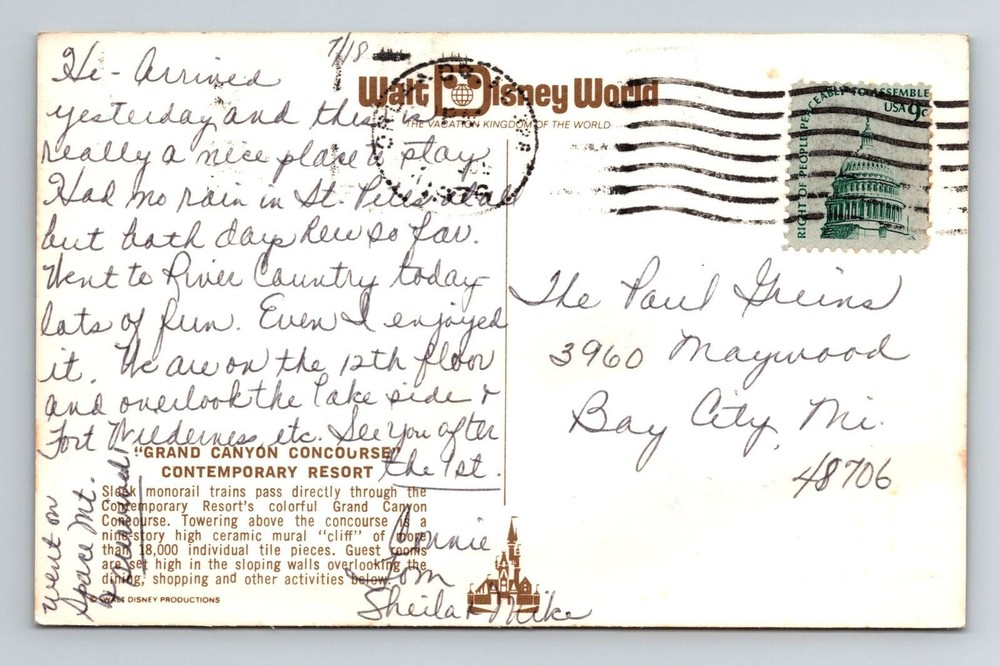 7/18
Hi - Arrived
yesterday and this is
really a nice place to stay.
Had no rain in St. Pete at all
but both days here so far.
Went to River Country today
lots of fun. Even I enjoyed
it. We are on the 12th floor
and overlook the lake side &
Fort Wilderness, etc. See you after
the 1st.
Connie
Tom
Sheila & Mike
went on
Space Mt.
Walt Disney World
THE VACATION KINGDOM OF THE WORLD
RIGHT OF PEOPLE PEACEABLY TO ASSEMBLE
USA 9c
The Paul Greins
3960 Maywood
Bay City, Mi.
48706
"GRAND CANYON CONCOURSE"
CONTEMPORARY RESORT
Sleek monorail trains pass directly through the
Contemporary Resort's colorful Grand Canyon
Concourse. Towering above the concourse is a
nine-story high ceramic mural "cliff" of more
than 18,000 individual tile pieces. Guest rooms
are set high in the sloping walls overlooking the
dining, shopping and other activities below.
© WALT DISNEY PRODUCTIONS